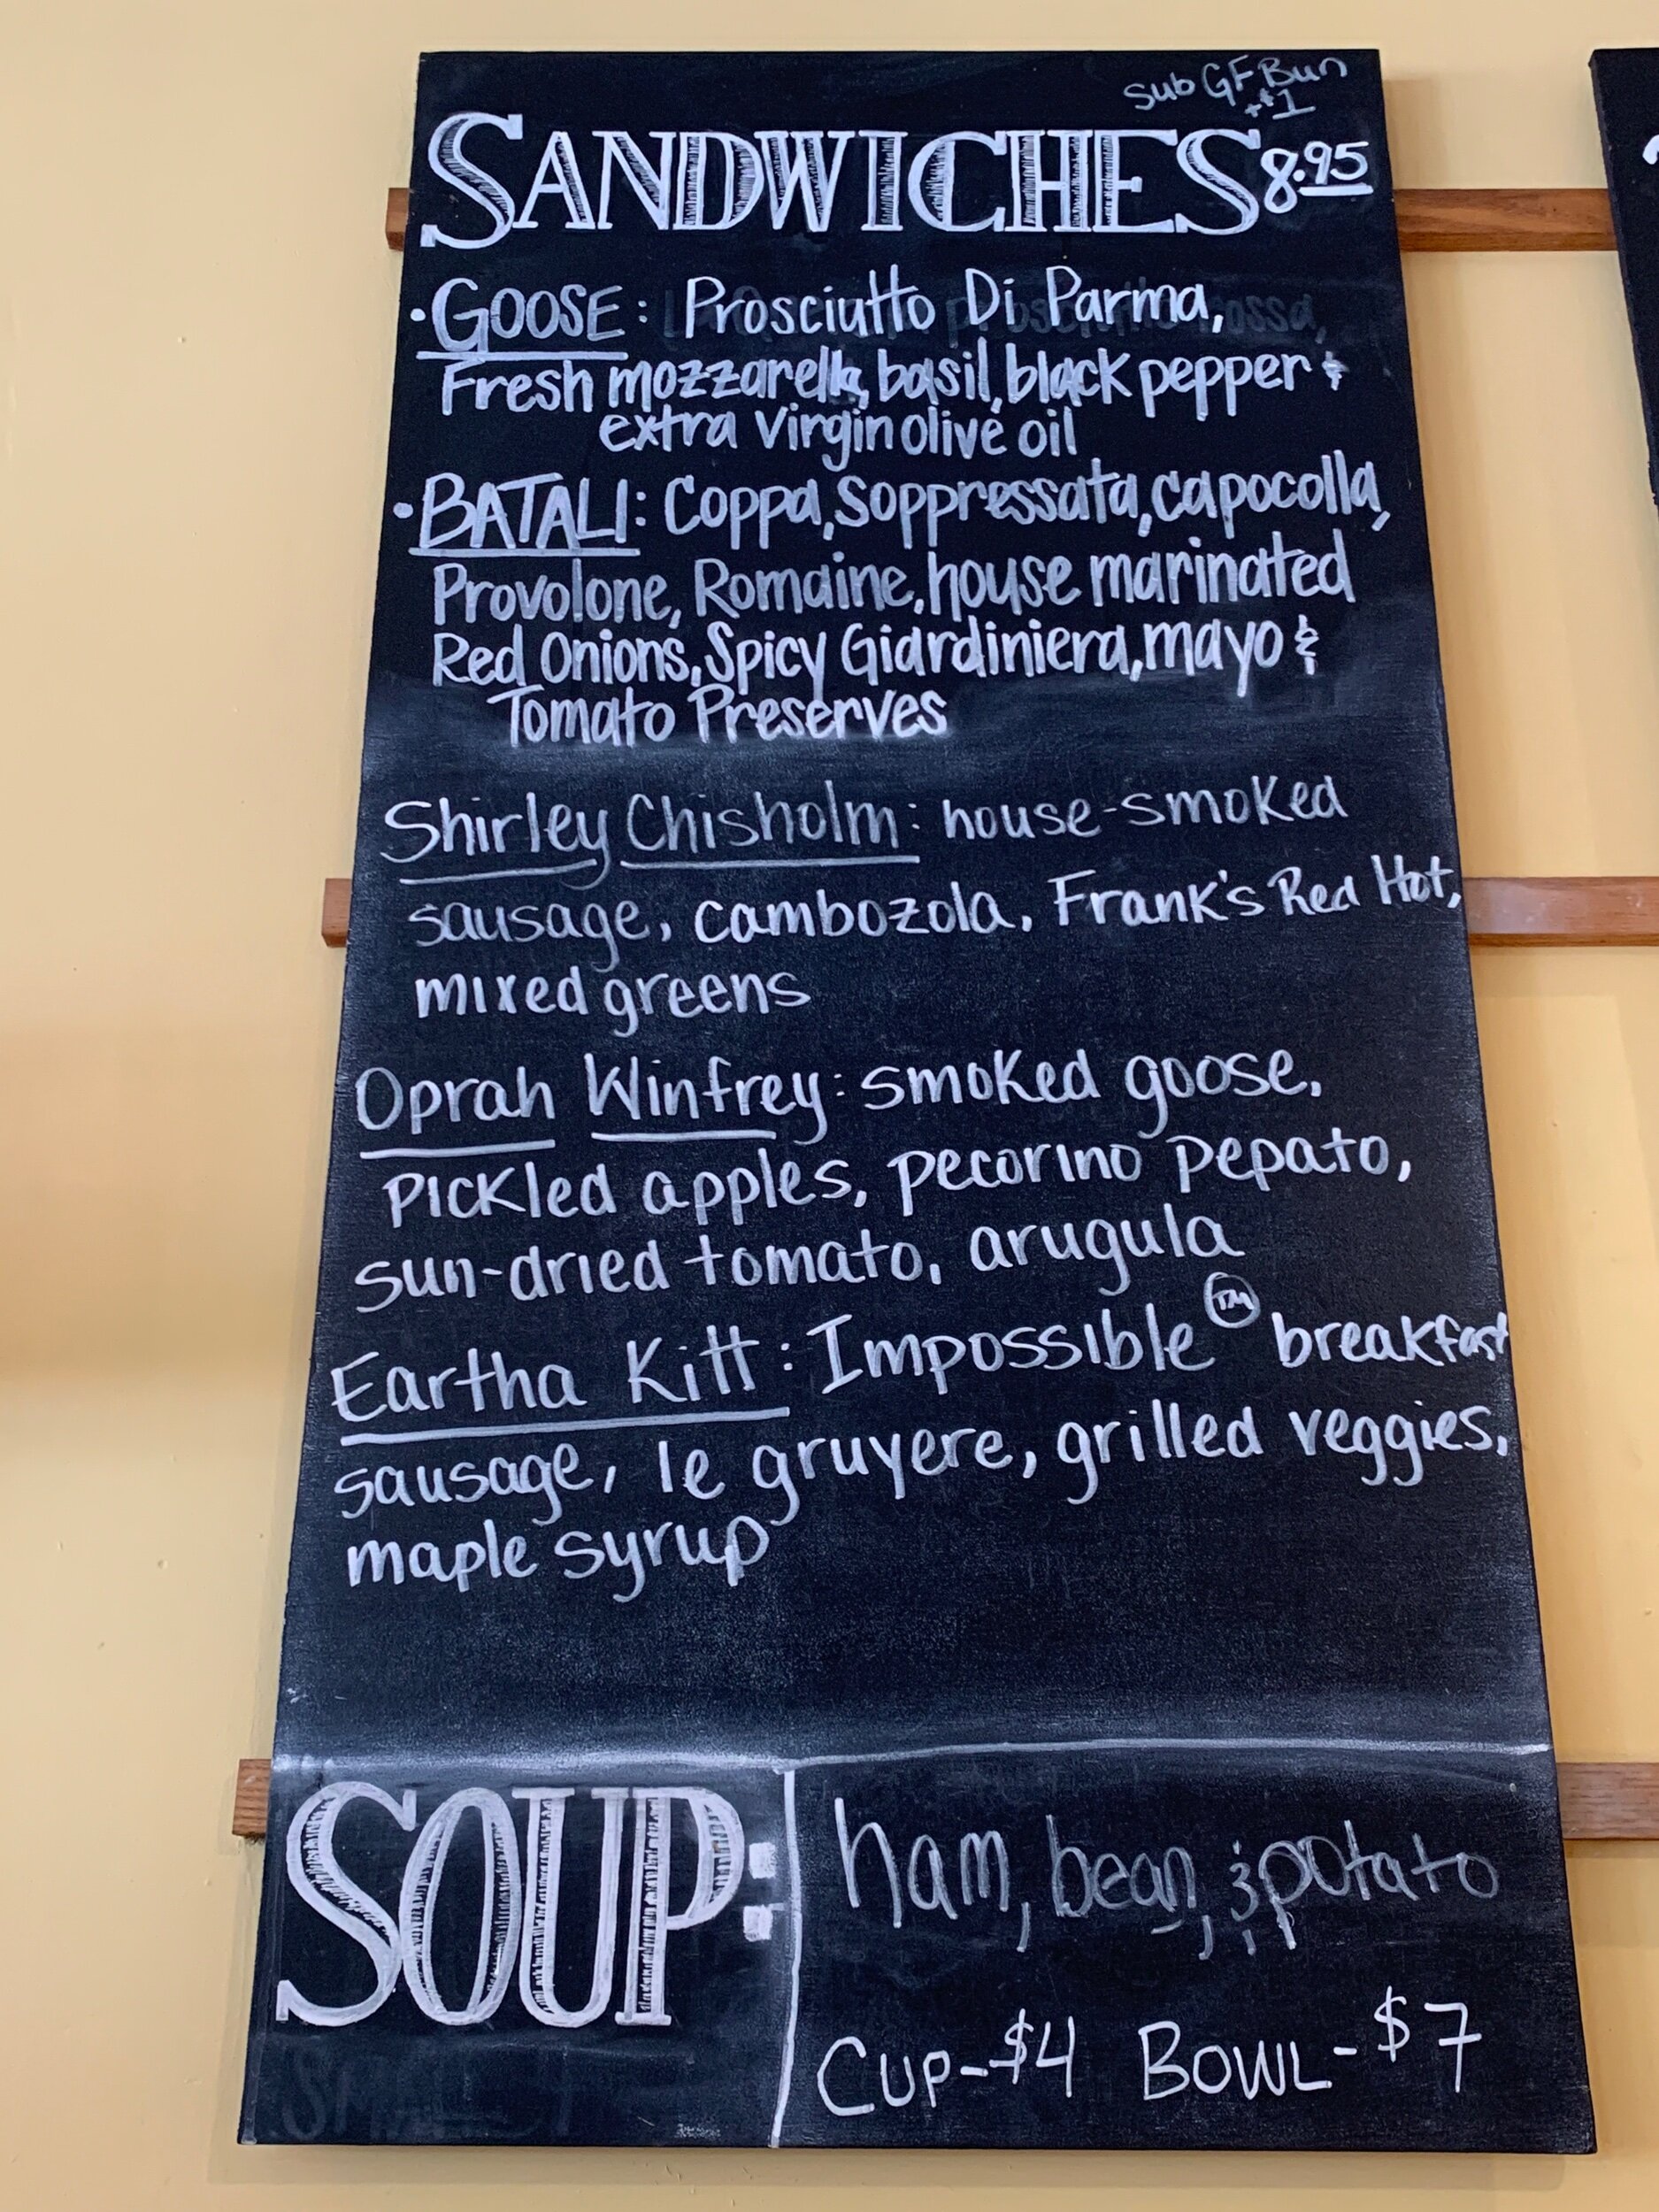 Sub GF Bun
+$1
SANDWICHES 8.95
• GOOSE: Prosciutto Di Parma,
Fresh mozzarella, basil, black pepper &
extra virgin olive oil
• BATALI: Coppa, Soppressata, capocolla,
Provolone, Romaine, house marinated
Red Onions, Spicy Giardiniera, mayo &
Tomato Preserves
Shirley Chisholm: house-smoked
sausage, cambozola, Frank's Red Hot,
mixed greens
Oprah Winfrey: smoked goose,
pickled apples, pecorino pepato,
sun-dried tomato, arugula
Eartha Kitt: Impossible ™ breakfast
sausage, le gruyere, grilled veggies,
maple syrup
SOUP:
ham, bean, & potato
CUP-$4 BOWL-$7